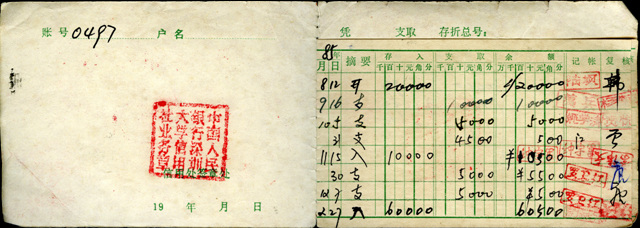 账号 0497 户名
中国人民
银行深圳
大学信用
19 年 月 日
凭 支取 存折总号:
85年
月 日 摘要 存入 支取 余额 记帐 复核
千百十元角分 千百十元角分 万千百十元角分
8 12 开 20000 ¥20000 韩
9 16 支 10000 10000
10 5 支 5000 5000
31 支 4500 500
11 15 入 10000 ¥10500
30 支 5000 ¥5500
12 7 支 5000 ¥500
12 27 入 60000 60500